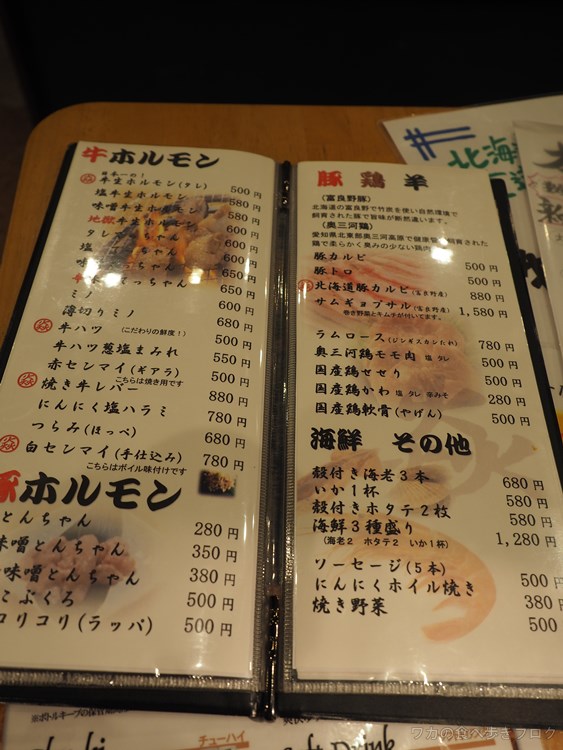 牛ホルモン
日本一の!
牛生ホルモン(タレ) 500円
塩牛生ホルモン 580円
味噌牛生ホルモン 580円
地獄牛生ホルモン 580円
タレ 600円
塩 600円
味 650円
650円
ミノ 600円
薄切りミノ 680円
牛ハツ (こだわりの鮮度!) 500円
牛ハツ葱塩まみれ 550円
赤センマイ(ギアラ) 650円
こちらは焼き用です
焼き牛レバー 880円
にんにく塩ハラミ 780円
つらみ(ほっぺ) 680円
白センマイ(手仕込み) 780円
こちらはボイル味付けです
豚ホルモン
とんちゃん 280円
味噌とんちゃん 350円
味噌とんちゃん 380円
こぶくろ 500円
コリコリ(ラッパ) 500円
豚 鶏 羊
(富良野豚)
北海道の富良野で竹炭を使い自然環境で
飼育された豚で旨味が断然違います。
(奥三河鶏)
愛知県北東部奥三河高原で健康管理飼育された
鶏で柔らかく臭みの少ない鶏肉
豚カルビ 500円
豚トロ 500円
北海道豚カルビ(富良野産) 880円
サムギョプサル(富良野産) 1,580円
巻き野菜とキムチが付いてます。
ラムロース(ジンギスカンたれ) 780円
奥三河鶏モモ肉 塩 タレ 500円
国産鶏せせり 500円
国産鶏かわ 塩 タレ 辛みそ 280円
国産鶏軟骨(やげん) 500円
海鮮 その他
殻付き海老3本 680円
いか1杯 580円
殻付きホタテ2枚 580円
海鮮3種盛り 1,280円
(海老2 ホタテ2 いか1杯)
ソーセージ(5本) 500円
にんにくホイル焼き 380円
焼き野菜 500
北海
チューハイ
フカの食べ歩きブログ